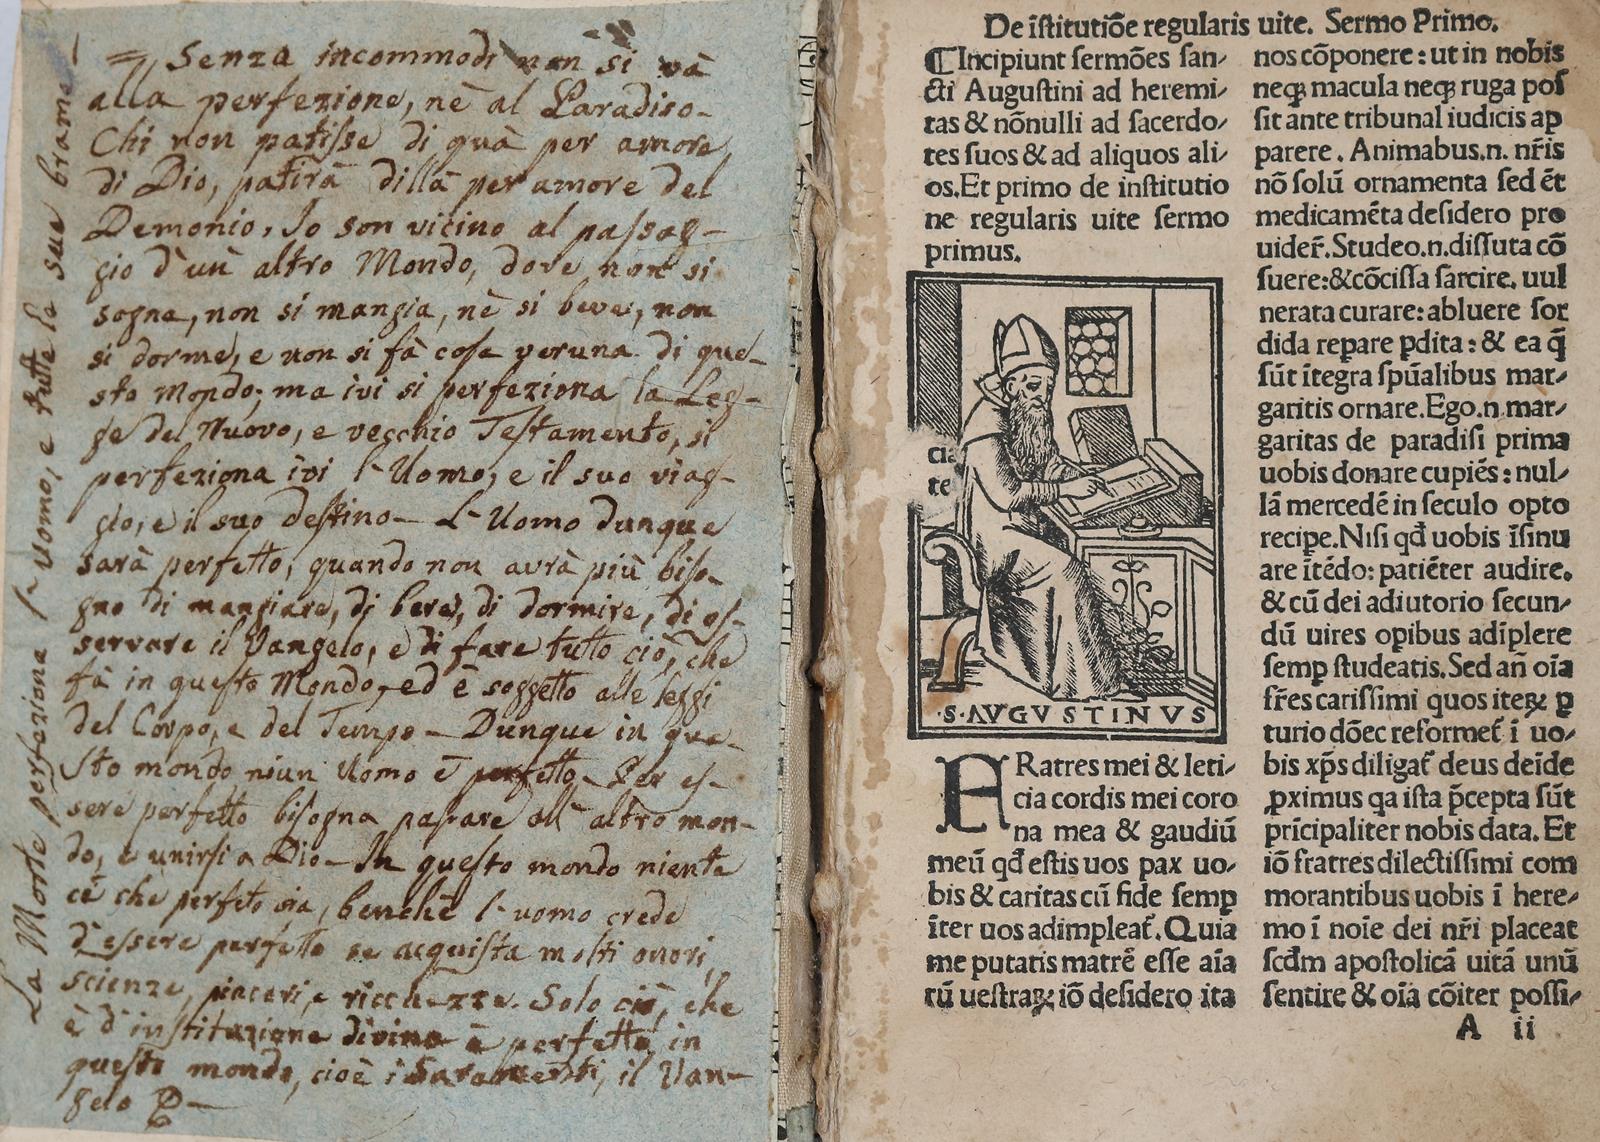 = Senza incommodi non si và
alla perfezione, nè al Paradiso-
Chi non patisse di quà per amore
di Dio, patirà dillà per amore del
Demonio. Io son vicino al paſsag-
gio d'un altro Mondo, dove non si
sogna, non si mangia, nè si beve, non
si dorme, e non si fà coſa veruna di que-
sto Mondo; ma ivi si perfeziona la Leg-
ge del Nuovo, e vecchio Teſtamento, si
perfeziona ivi l'Uomo, e il suo viag-
gio, e il suo deſtino- L'Uomo dunque
sarà perfetto, quando non avrà più biſo-
gno di mangiare, di bere, di dormire, di oſ-
servare il Vangelo, e di fare tutto ciò, che
fà in queſto Mondo, ed è soggetto alle leggi
del Corpo, e del Tempo- Dunque in que-
ſto mondo niun Uomo è perfetto- Per eſ-
sere perfetto biſogna paſsare all' altro mon-
do, e unirſi a Dio- In queſto mondo niente
cè che perfeto sia, benchè l'uomo crede
d'eſsere perfetto se acquiſta molti onori,
scienze, piaceri, e ricchezze. Solo ciò, che
è d'inſtituzione divina è perfetto in
queſto mondo, cioè i Saramenti, il Van-
gelo
La Morte perfeziona l'uomo, e tutte le sue brame!
De īſtitutiōe regularis uite. Sermo Primo.
¶Incipiunt ſermōes ſan⸗
cti Auguſtini ad heremi⸗
tas & nōnulli ad ſacerdo⸗
tes ſuos & ad aliquos ali⸗
os. Et primo de inſtitutio
ne regularis uite ſermo
primus.
cia
te
·S·AVGVSTINVS
FRatres mei & leti⸗
cia cordis mei coro
na mea & gaudiū
meū qđ eſtis uos pax uo⸗
bis & caritas cū fide ſemp
īter uos adimpleat̄. Quia
me putatis matrē eſſe aīa
rū ueſtraꝝ iō deſidero ita
nos cōponere: ut in nobis
neqꝫ macula neqꝫ ruga poſ
ſit ante tribunal iudicis ap
parere. Animabus.n. nr̄is
nō ſolū ornamenta ſed ēt
medicamēta deſidero pro
uider̄. Studeo.n. diſſuta cō
ſuere: & cōciſſa ſarcire. uul
nerata curare: abluere ſor
dida repare ꝑdita: & ea q̄
ſūt ītegra ſpūalibus mar⸗
garitis ornare. Ego.n. mar⸗
garitas de paradiſi prima
uobis donare cupiēs: nul⸗
lā mercedē in ſeculo opto
recipe. Niſi qđ uobis īſinu
are ītēdo: patiēter audire.
& cū dei adiutorio ſecun⸗
dū uires opibus adīplere
ſemp ſtudeatis. Sed an̄ oīa
fr̄es cariſſimi quos iteꝝ ꝑ
turio dōec reformet̄ ī uo⸗
bis xp̄s diligat̄ deus deīde
ꝓximus qa iſta p̄cepta ſūt
prīcipaliter nobis data. Et
iō fratres dilectiſſimi com
morantibus uobis ī here⸗
mo ī noīe dei nr̄i placeat
ſcđm apoſtolicā uitā unū
ſentire & oīa cōiter poſſi⸗
A ii